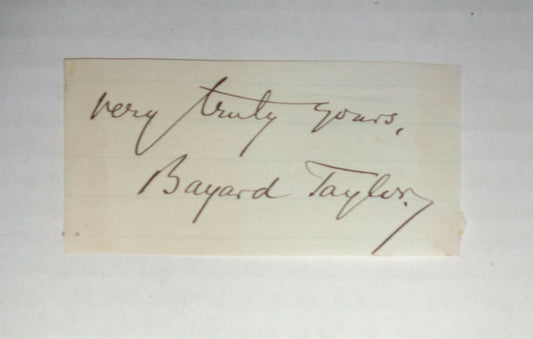 very truly yours,
Bayard Taylor.